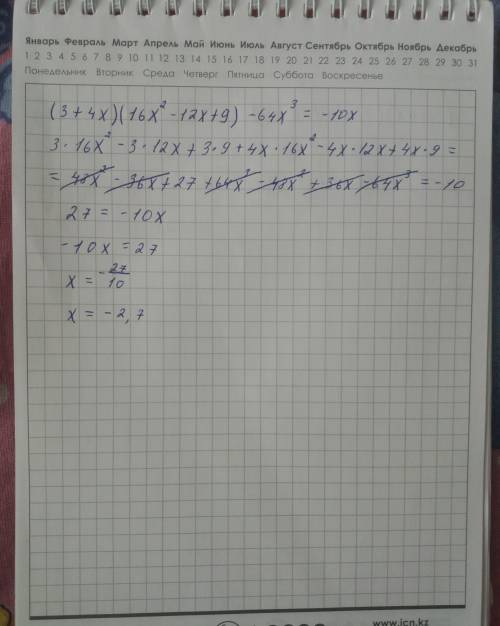 Январь Февраль Март Апрель Май Июнь Июль Август Сентябрь Октябрь Ноябрь Декабрь
1 2 3 4 5 6 7 8 9 10 11 12 13 14 15 16 17 18 19 20 21 22 23 24 25 26 27 28 29 30 31
Понедельник Вторник Среда Четверг Пятница Суббота Воскресенье
(3+4x)(16x²-12x+9)-64x³=-10x
3·16x²-3·12x+3·9+4x·16x²-4x·12x+4x·9=
=48x²-36x+27+64x³-48x²+36x-64x³=-10
27=-10x
-10x=27
x=-27/10
x=-2,7
www.icn.kz